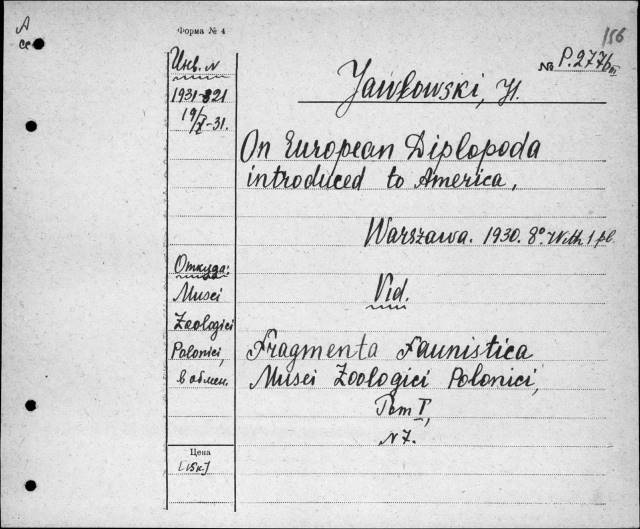 A
Форма № 4
156
№ P.2776
Инв. №
1931-821
19/X-31.
Jawłowski, H.
On European Diplopoda
introduced to America,
Warszawa. 1930. 8° With 1 pl.
Откуда:
Musei
Zoologici
Polonici,
в обмен.
Vid.
Fragmenta Faunistica
Musei Zoologici Polonici,
Tom I,
N 7.
Цена
[15к.]